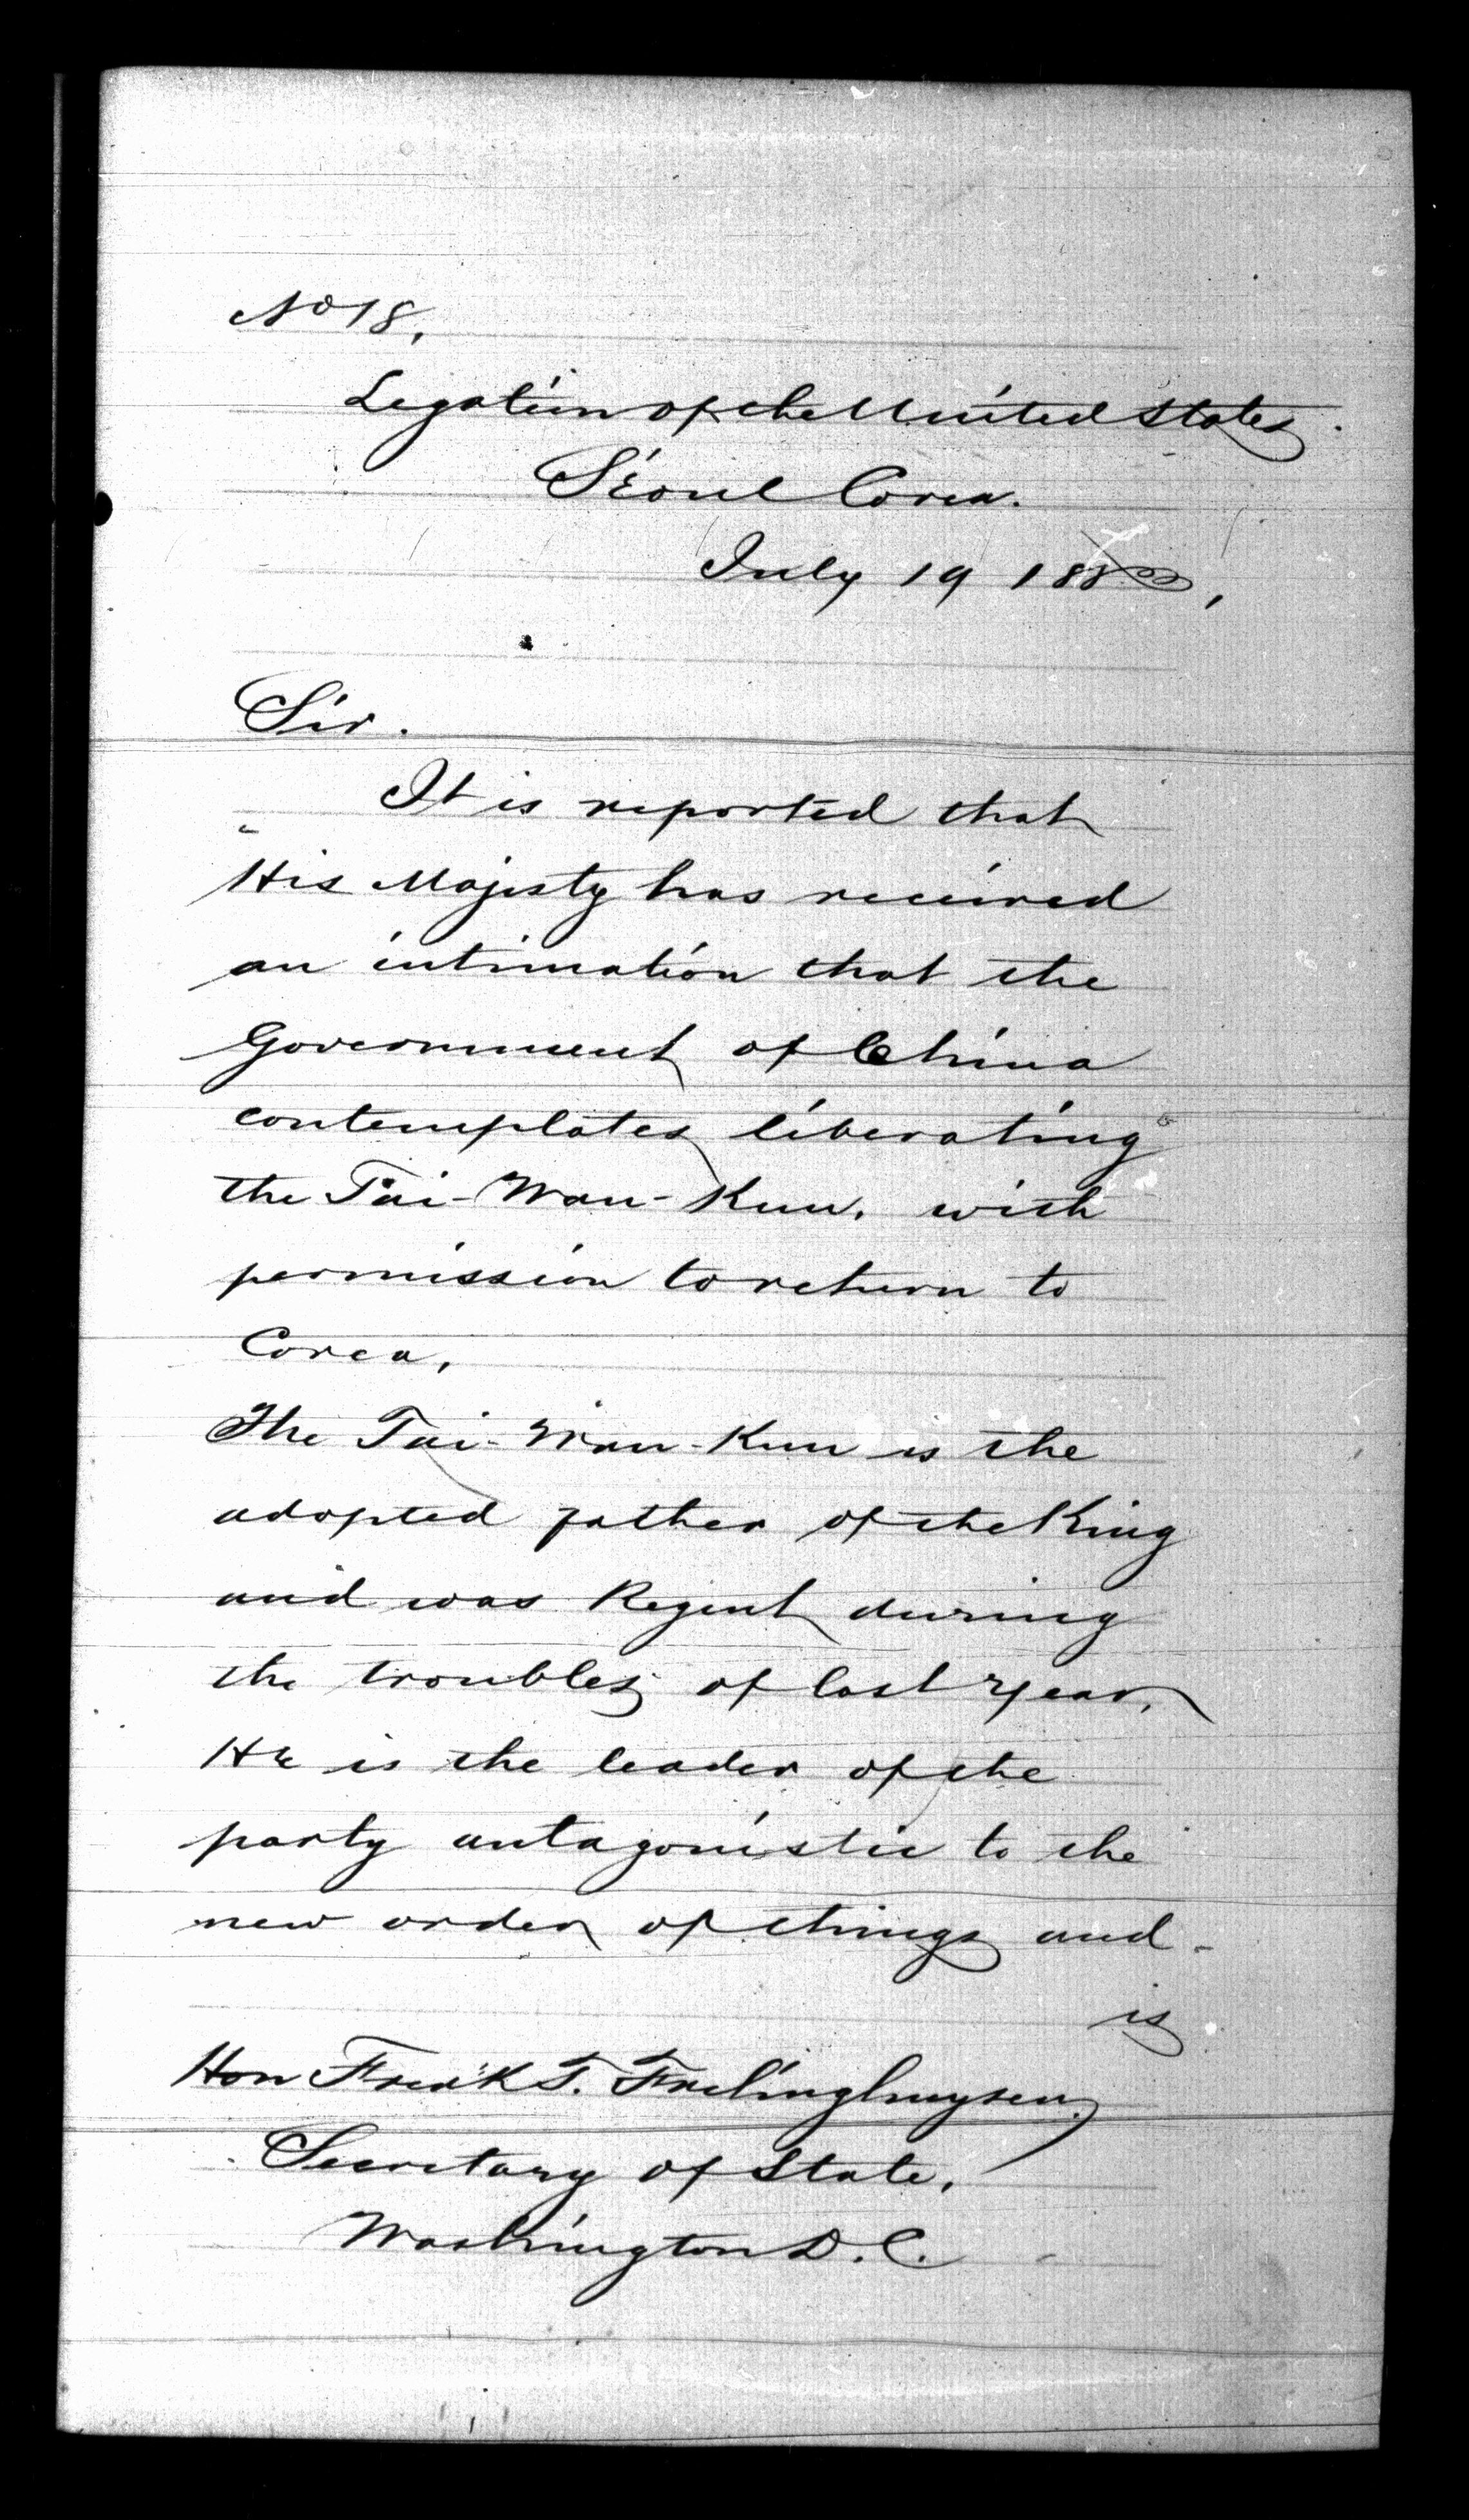 No 18,
Legation of the United States.
Séoul Corea.
July 19 1883,
Sir.
It is reported that
His Majesty has received
an intimation that the
Government of China
contemplates liberating
the Tai-Wan-Kun, with
permission to return to
Corea,
The Tai-Wan-Kun is the
adopted father of the King
and was Regent during
the troubles of last year,
He is the leader of the
party antagonistic to the
new order of things and-
is
Hon Fred'k T. Frelinghuysen,
Secretary of State,
Washington D.C.